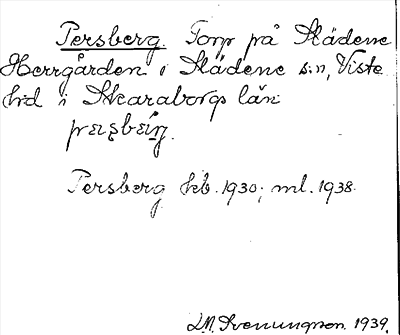 Persberg. Torp på Slädene
Herrgården i Slädene s:n, Viste
hd i Skaraborgs län
Persberg kb. 1930; ml. 1938.
L.M. Svenungson. 1939.